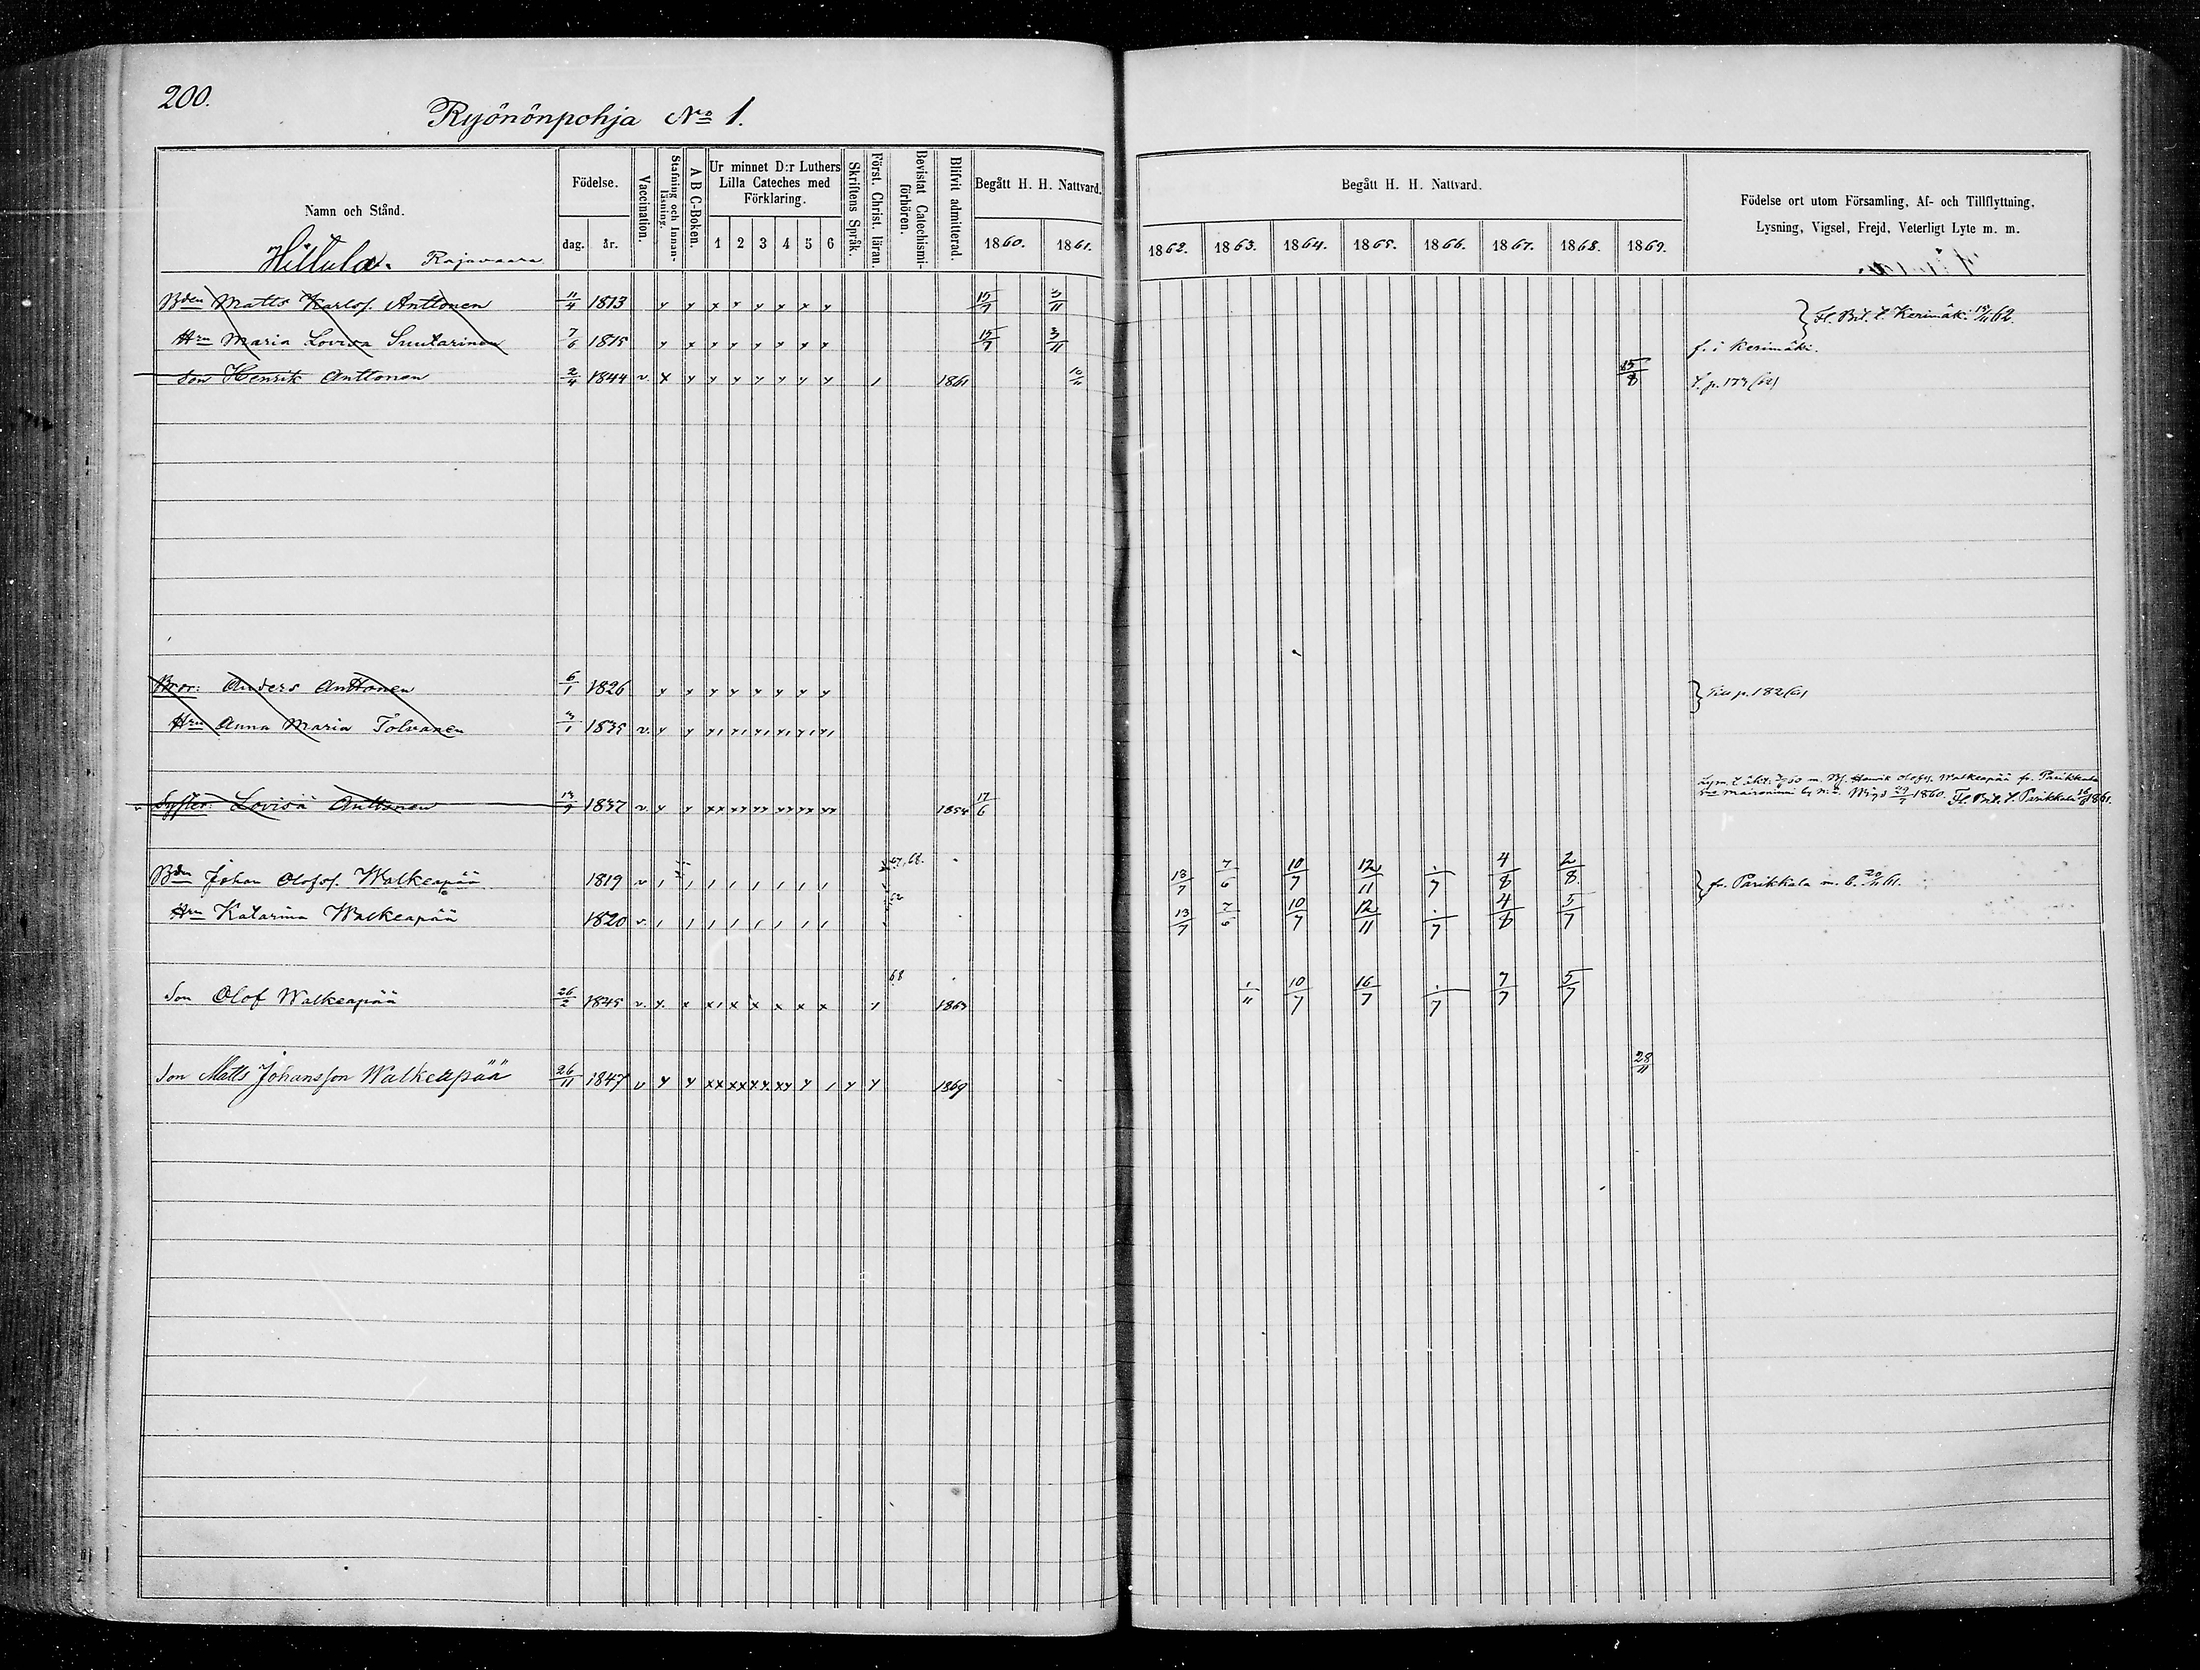 200.
Ryönönpohja No 1.
Namn och Stånd.
Födelse.
dag.
år.
Vaccination.
Stafning och Innanläsning.
A B C-Boken.
Ur minnet D:r Luthers
Lilla Cateches med
Förklaring.
1 2 3 4 5 6
Skriftens Språk.
Först. Christ. läran.
Bevistat Catechismi-
förhören.
Blifvit admitterad.
Begått H. H. Nattvard.
1860. 1861.
Begått H. H. Nattvard.
1862. 1863. 1864. 1865. 1866. 1867. 1868. 1869.
Födelse ort utom Församling, Af- och Tillflyttning,
Lysning, Vigsel, Frejd, Veterligt Lyte m. m.
Hittula. Rajavaara
Bden Matts Karlsf. Anttonen 11/4 1813 15/7 3/11 Fl. Bet. t. Kerimäki 18/11 62.
Hru Maria Lovisa Suutarinen 7/6 1815 15/7 3/11 f. i Kerimäki.
Son Henrik Anttonen 2/4 1844 v. 1861 10/11 25/8 t. p. 179
Bror: Anders Anttonen 6/1 1826 Till p. 182
Hru Anna Maria Tolvanen 3/1 1835 v.
Syster: Lovisa Anttonen 13/9 1837 v. 1854 17/6
m. Henrik Olofss. Walkeapää fr. Parikkala
Wigd 29/7 1860. Fl. Bet. t. Parikkala 16/6 1861.
Bdn Johan Olofsf. Walkeapää 1819 v 67, 68. 13/7 7/6 10/7 12/11 ./7 4/8 2/8 fr. Parikkala m. b. 20/11 61.
Hru Katarina Walkeapää 1820 v. 13/7 7/6 10/7 12/11 ./7 4/8 5/7
Son Olof Walkeapää 26/2 1845 v. 68 1863 1/11 10/7 16/7 ./7 7/7 5/7
Son Matts Johansson Walkeapää 26/11 1847 v 1869 28/11